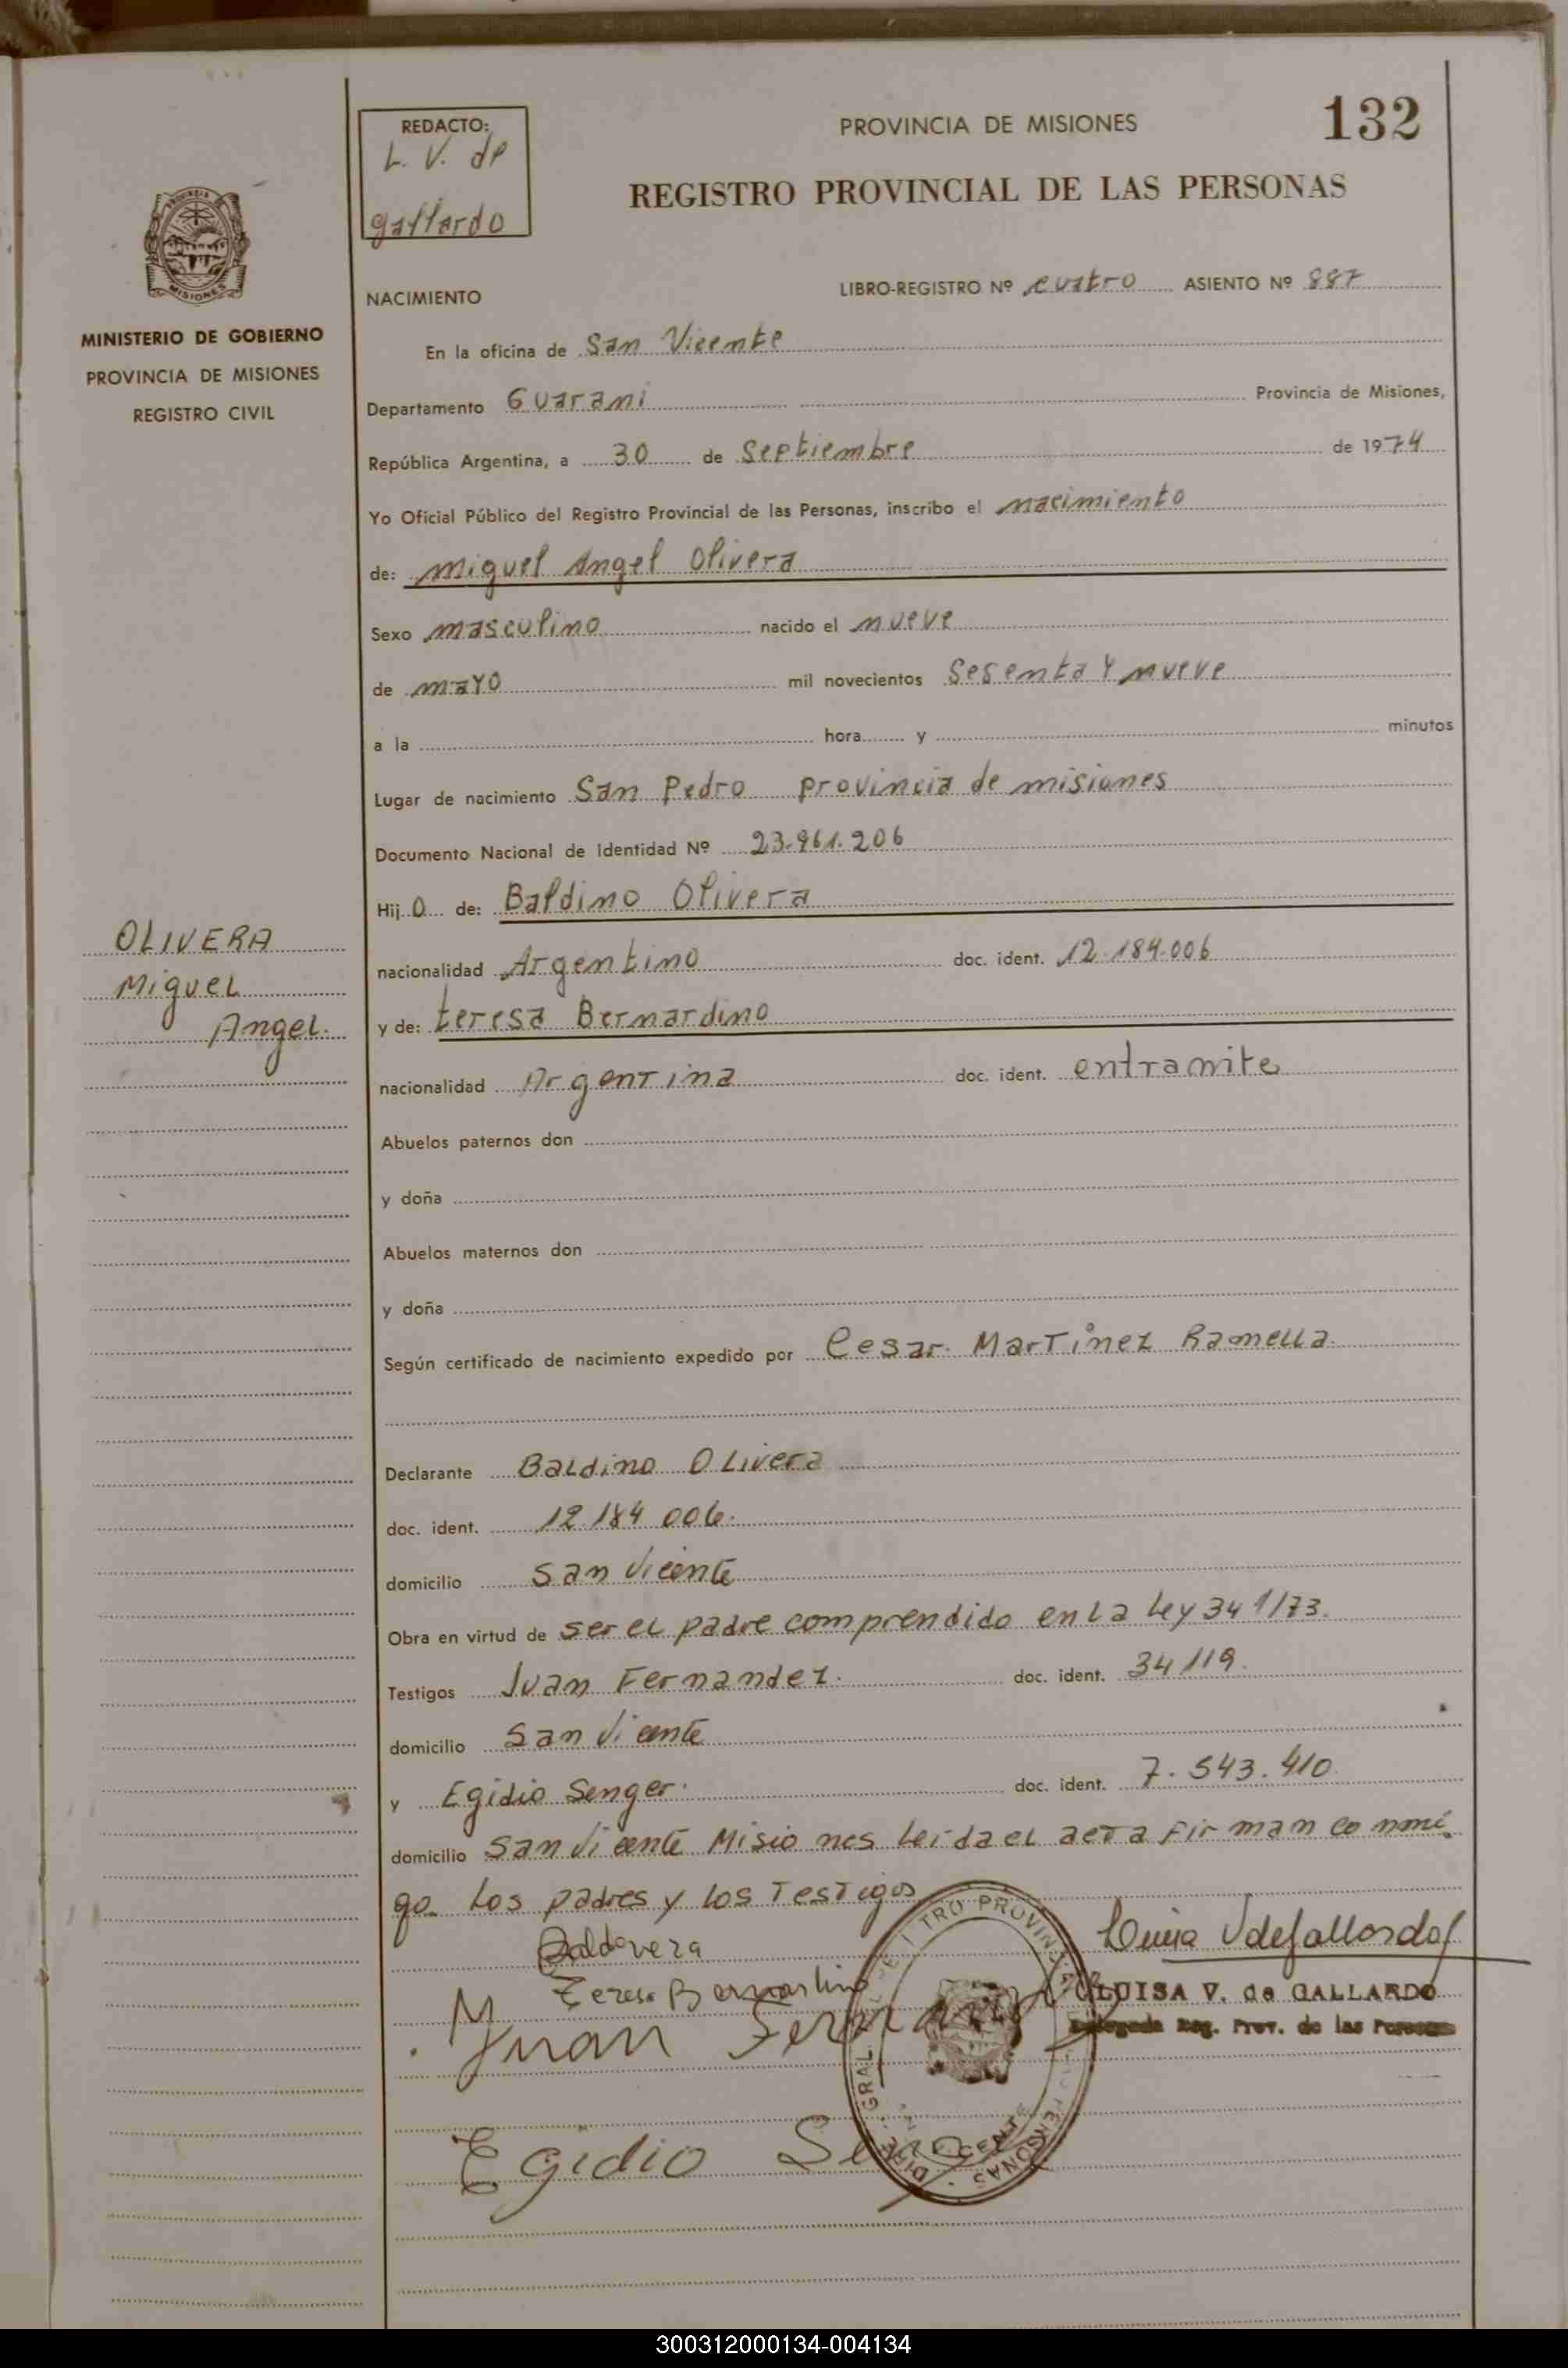 132
REDACTO:
L. V. de
gallardo
PROVINCIA DE MISIONES
REGISTRO PROVINCIAL DE LAS PERSONAS
MISIONES
MINISTERIO DE GOBIERNO
PROVINCIA DE MISIONES
REGISTRO CIVIL
NACIMIENTO
LIBRO-REGISTRO Nº cuatro ASIENTO Nº 887
En la oficina de San Vicente
Departamento Guarani Provincia de Misiones,
República Argentina, a 30 de Septiembre de 1974
Yo Oficial Público del Registro Provincial de las Personas, inscribo el nacimiento
de: Miguel Angel Olivera
Sexo masculino nacido el nueve
de mayo mil novecientos Sesenta Y nueve
a la hora y minutos
Lugar de nacimiento San Pedro provincia de misiones
Documento Nacional de Identidad Nº 23.961.206
Hijo de: Baldino Olivera
OLIVERA
Miguel
Angel.
nacionalidad Argentino doc. ident. 12.184.006
y de: teresa Bernardino
nacionalidad Argentina doc. ident. entramite
Abuelos paternos don
y doña
Abuelos maternos don
y doña
Según certificado de nacimiento expedido por Cesar Martinez Ramella.
Declarante Baldino Olivera
doc. ident. 12.184 006.
domicilio San Vicente
Obra en virtud de ser el padre comprendido en la Ley 341/73.
Testigos Juan Fernandez. doc. ident. 34119.
domicilio San Vicente
y Egidio Senger. doc. ident. 7.543.410
domicilio San Vicente Misiones Leida el acta firman conmi
go Los padres y los Testigos
Teresa Bernardino
Juan Fernandez
Egidio Senger
LUISA V. de GALLARDO
Delegada Reg. Prov. de las Personas
300312000134-004134